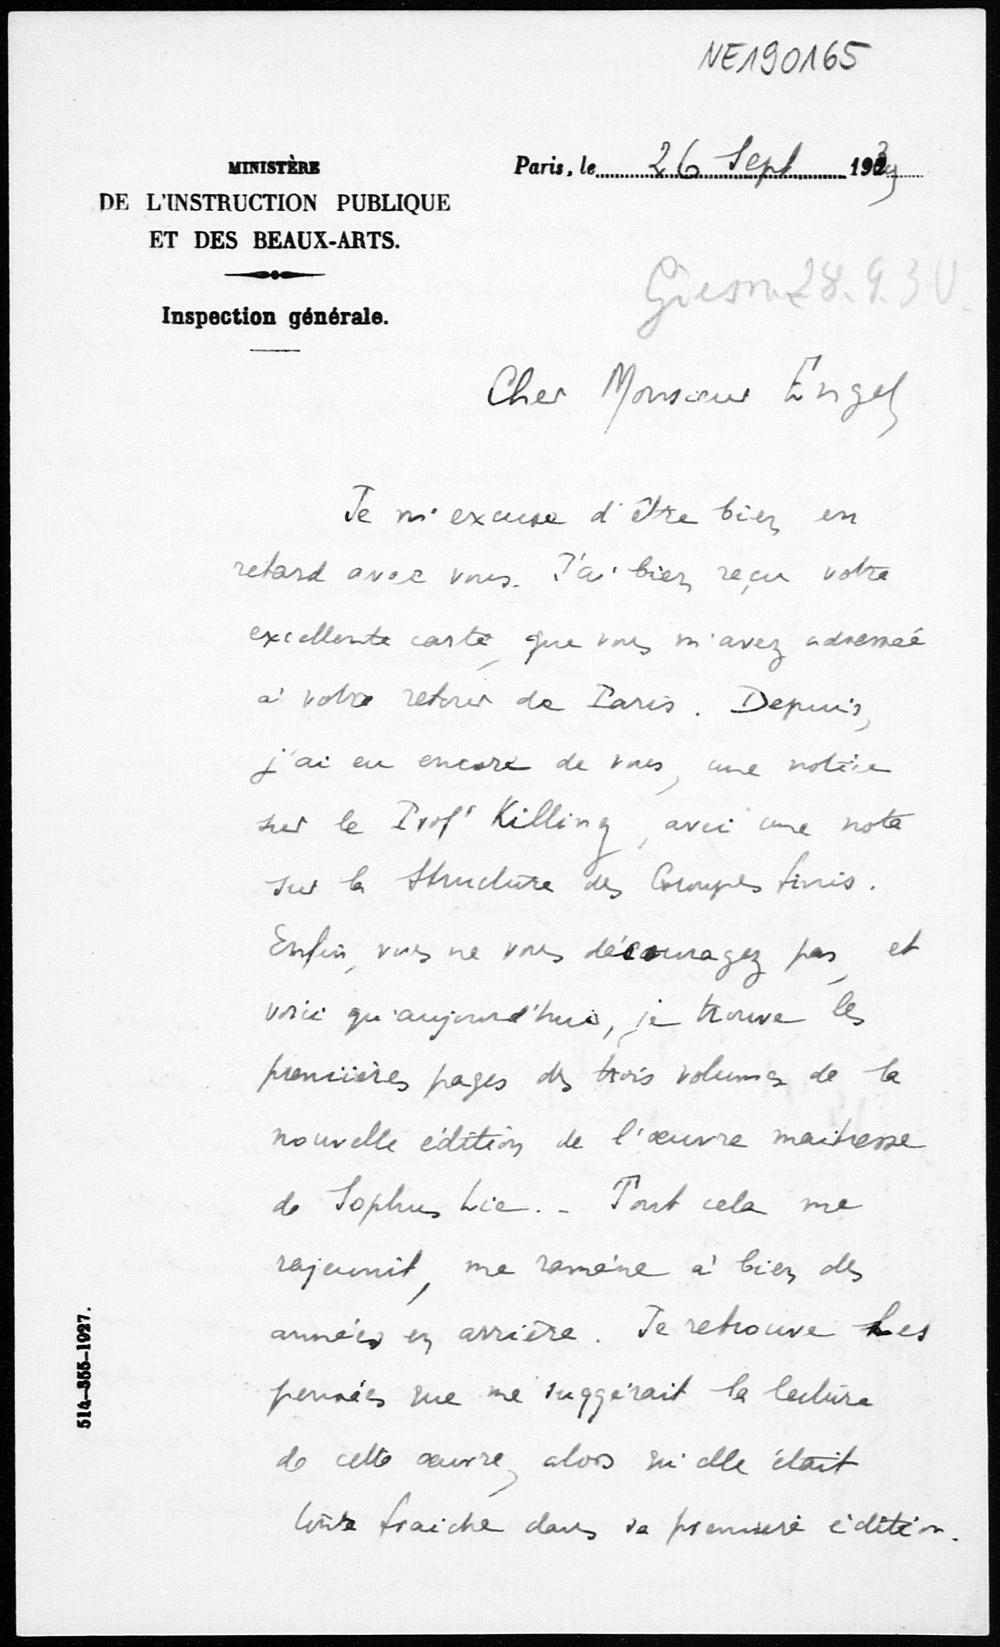 NE190165
Paris, le 26 Sept 1930
MINISTÈRE
DE L'INSTRUCTION PUBLIQUE
ET DES BEAUX-ARTS.
Inspection générale.
28.9.30.
Cher Monsieur Engel
Je m'excuse d'être bien en
retard avec vous. J'ai bien reçu votre
excellente carte, que vous m'avez adressée
à votre retour de Paris. Depuis,
j'ai eu encore de vous, une notice
sur le Profr Killing, avec une note
sur la Structure des Groupes finis.
Enfin, vous ne vous découragez pas, et
voici qu'aujourd'hui, je trouve les
premières pages des trois volumes de la
nouvelle édition de l'œuvre maitresse
de Sophus Lie. - Tout cela me
rajeunit, me ramène à bien des
années en arrière. Je retrouve les
pensées que me suggérait la lecture
de cette œuvre, alors qu'elle était
toute fraiche dans sa première édition.
514-355-1927.